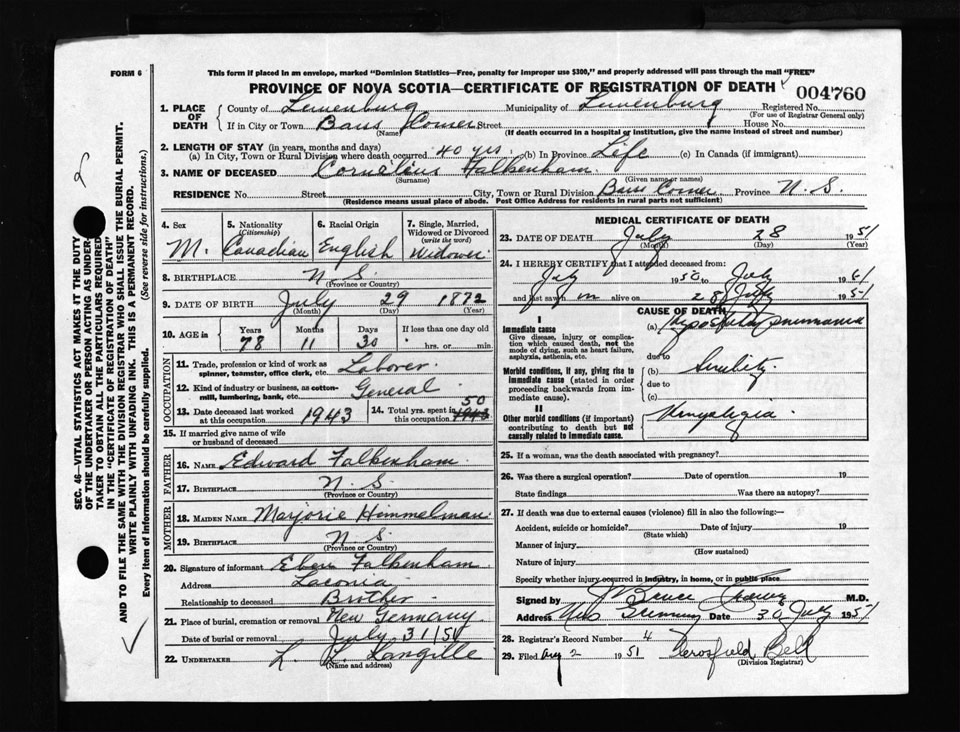 FORM 6
This form if placed in an envelope, marked "Dominion Statistics—Free, penalty for improper use $300," and properly addressed will pass through the mail "FREE"
PROVINCE OF NOVA SCOTIA—CERTIFICATE OF REGISTRATION OF DEATH
004760
1. PLACE OF DEATH
County of Lunenburg Municipality of Lunenburg Registered No.
(For use of Registrar General only)
If in City or Town Barss Corner Street House No.
(Name) (If death occurred in a hospital or institution, give the name instead of street and number)
2. LENGTH OF STAY (in years, months and days)
(a) In City, Town or Rural Division where death occurred 40 yrs. (b) In Province Life (c) In Canada (if immigrant)
3. NAME OF DECEASED Cornelius Falkenham
(Surname) (Given name or names)
RESIDENCE No. Street City, Town or Rural Division Barss Corner Province N.S.
(Residence means usual place of abode. Post Office Address for residents in rural parts not sufficient)
4. Sex M.
5. Nationality (Citizenship) Canadian
6. Racial Origin English
7. Single, Married, Widowed or Divorced (write the word) Widower
8. BIRTHPLACE N.S.
(Province or Country)
9. DATE OF BIRTH July 29 1872
(Month) (Day) (Year)
10. AGE in Years Months Days If less than one day old
78 11 30 hrs. or min.
OCCUPATION
11. Trade, profession or kind of work as spinner, teamster, office clerk, etc. Laborer
12. Kind of industry or business, as cotton-mill, lumbering, bank, etc. General
13. Date deceased last worked at this occupation 1943
14. Total yrs. spent in this occupation 50 1943
15. If married give name of wife or husband of deceased
FATHER
16. NAME Edward Falkenham
17. BIRTHPLACE N.S.
(Province or Country)
MOTHER
18. MAIDEN NAME Marjorie Himmelman
19. BIRTHPLACE N.S.
(Province or Country)
20. Signature of informant Eben Falkenham
Address Laconia
Relationship to deceased Brother
21. Place of burial, cremation or removal New Germany
Date of burial or removal July 31/51
22. UNDERTAKER L. L. Langille
(Name and address)
MEDICAL CERTIFICATE OF DEATH
23. DATE OF DEATH July 28 1951
(Month) (Day) (Year)
24. I HEREBY CERTIFY that I attended deceased from
July 1950 to July 1951
and last saw m alive on 28 July 1951
CAUSE OF DEATH
I
Immediate cause
Give disease, injury or complication which caused death, not the mode of dying, such as heart failure, asphyxia, asthenia, etc.
(a) Hypostatic pneumonia
due to
Morbid conditions, if any, giving rise to immediate cause (stated in order proceeding backwards from immediate cause).
(b) Senility
due to
(c)
II
Other morbid conditions (if important) contributing to death but not causally related to immediate cause.
25. If a woman, was the death associated with pregnancy?
26. Was there a surgical operation? Date of operation 19
State findings Was there an autopsy?
27. If death was due to external causes (violence) fill in also the following:—
Accident, suicide or homicide? Date of injury 19
(State which)
Manner of injury
(How sustained)
Nature of injury
Specify whether injury occurred in industry, in home, or in public place
Signed by J Bruce M.D.
Address Date 30 July 1951
28. Registrar's Record Number 4
29. Filed Aug 2 1951 Crosfield Bell
(Division Registrar)
SEC. 46—VITAL STATISTICS ACT MAKES IT THE DUTY
OF THE UNDERTAKER OR PERSON ACTING AS UNDERTAKER TO OBTAIN ALL THE PARTICULARS REQUIRED
IN THE "CERTIFICATE OF REGISTRATION OF DEATH"
AND TO FILE THE SAME WITH THE DIVISION REGISTRAR WHO SHALL ISSUE THE BURIAL PERMIT.
WRITE PLAINLY WITH UNFADING INK. THIS IS A PERMANENT RECORD.
Every item of Information should be carefully supplied. (See reverse side for instructions.)
2